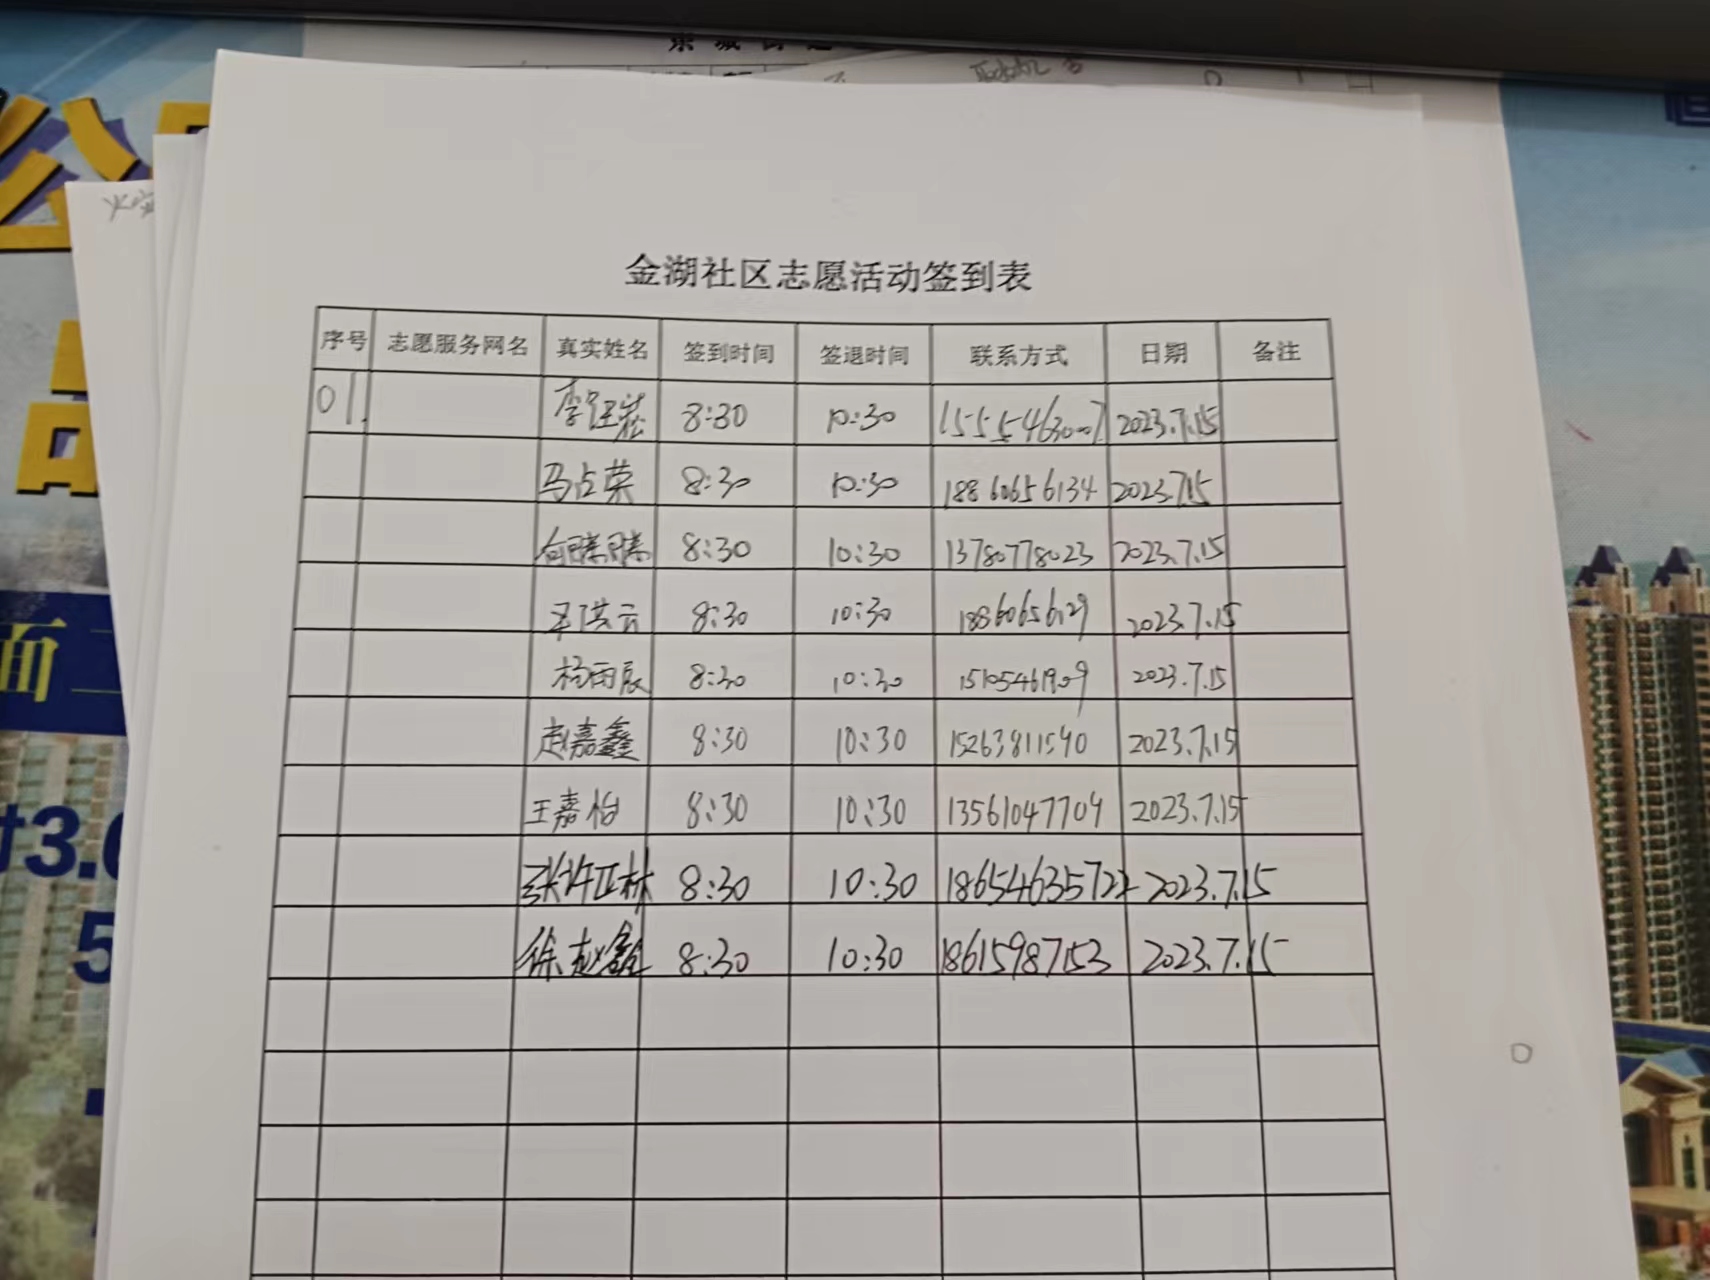 金湖社区志愿活动签到表
序号 志愿服务网名 真实姓名 签到时间 签退时间 联系方式 日期 备注
01. 8:30 10:30 2023.7.15
马占荣 8:30 10:30 18860656134 2023.7.15
8:30 10:30 13780778023 2023.7.15
8:30 10:30 18860656129 2023.7.15
杨雨辰 8:30 10:30 15105461909 2023.7.15
赵嘉鑫 8:30 10:30 15263811590 2023.7.15
王嘉怡 8:30 10:30 13561047704 2023.7.15
张许亚林 8:30 10:30 18654635722 2023.7.15
徐赵鑫 8:30 10:30 18615987153 2023.7.15